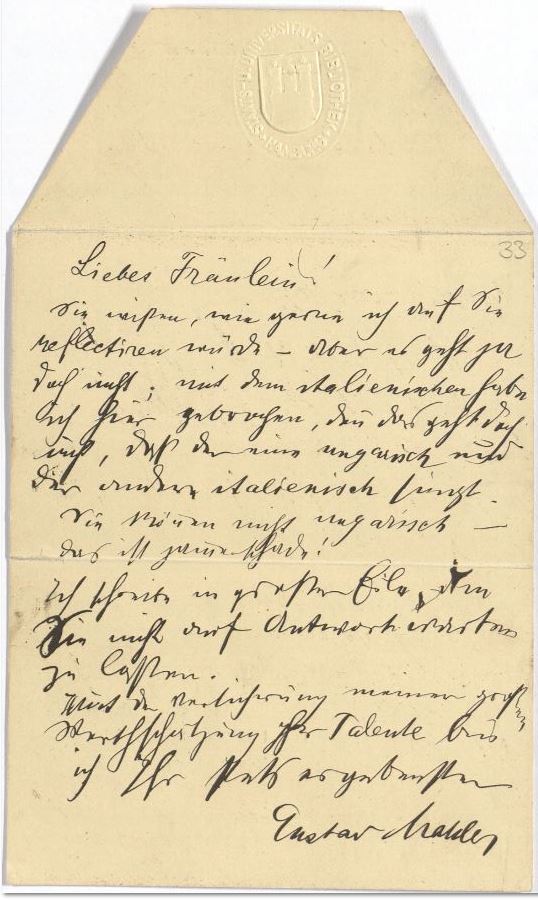 STAATS- U. UNIVERSITÄTS BIBLIOTHEK HAMBURG
33
Liebes Fräulein!
Sie wißen, wie gerne ich auf Sie
reflectiren würde – aber es geht ja
doch nicht; mit dem italienischen habe
ich hier gebrochen, den das geht doch
nicht, daß der eine ungarisch und
der andere italienisch singt.
Sie können nicht ungarisch –
das ist jammerschade!
Ich schreibe in großer Eile, um
Sie nicht auf Antwort warten
zu lassen.
Mit der Versicherung meiner großen
Werthschätzung Ihrer Talente bin
ich Ihr stets ergebenster
Gustav Mahler